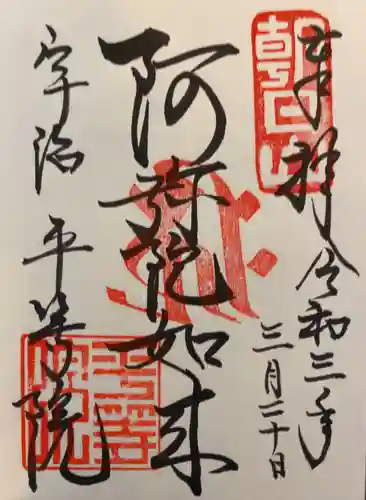 奉拝 令和三年
三月二十日
朝日山
阿弥陀如来
宇治 平等院
平等院